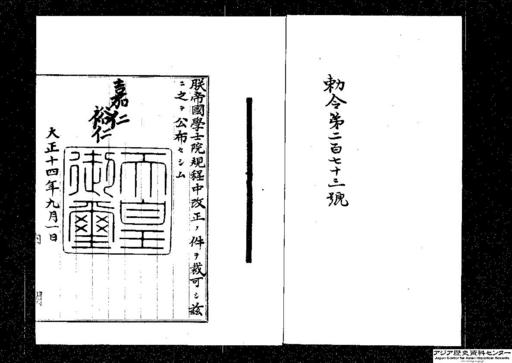 勅令第二百七十三號
朕帝國學士院規程中改正ノ件ヲ裁可シ茲
ニ之ヲ公布セシム
嘉仁
裕仁
天皇御璽
大正十四年九月一日
アジア歴史資料センター
Japan Center for Asian Historical Records